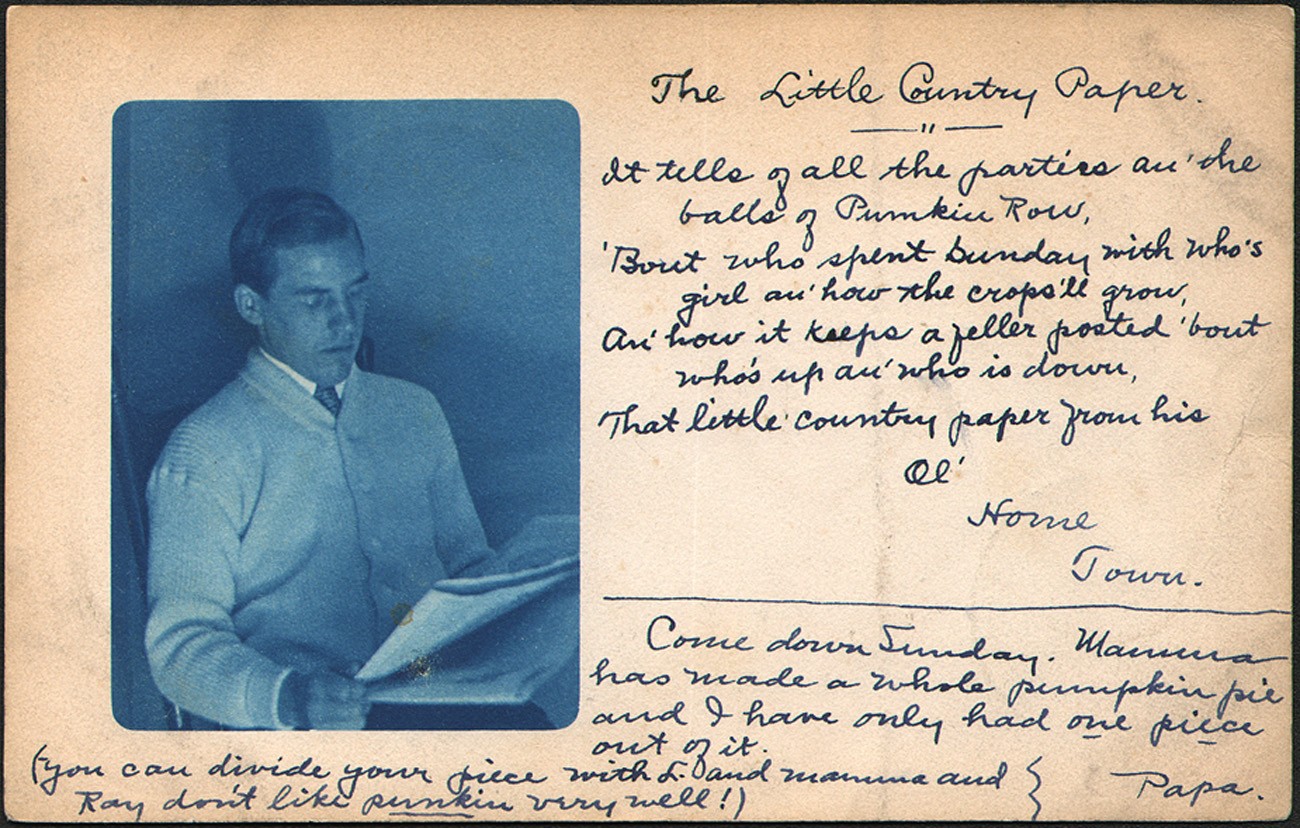 The Little Country Paper.
It tells of all the parties an' the
balls of Pumkin Row,
'Bout who spent Sunday with who's
girl an' how the crops'll grow,
An' how it keeps a feller posted 'bout
who's up an' who is down,
That little country paper from his
Ol'
Home
Town.
Come down Sunday. Mamma
has made a whole pumpkin pie
and I have only had one piece
out of it.
(you can divide your piece with L. and mamma and
Ray don't like punkin very well!)
Papa.